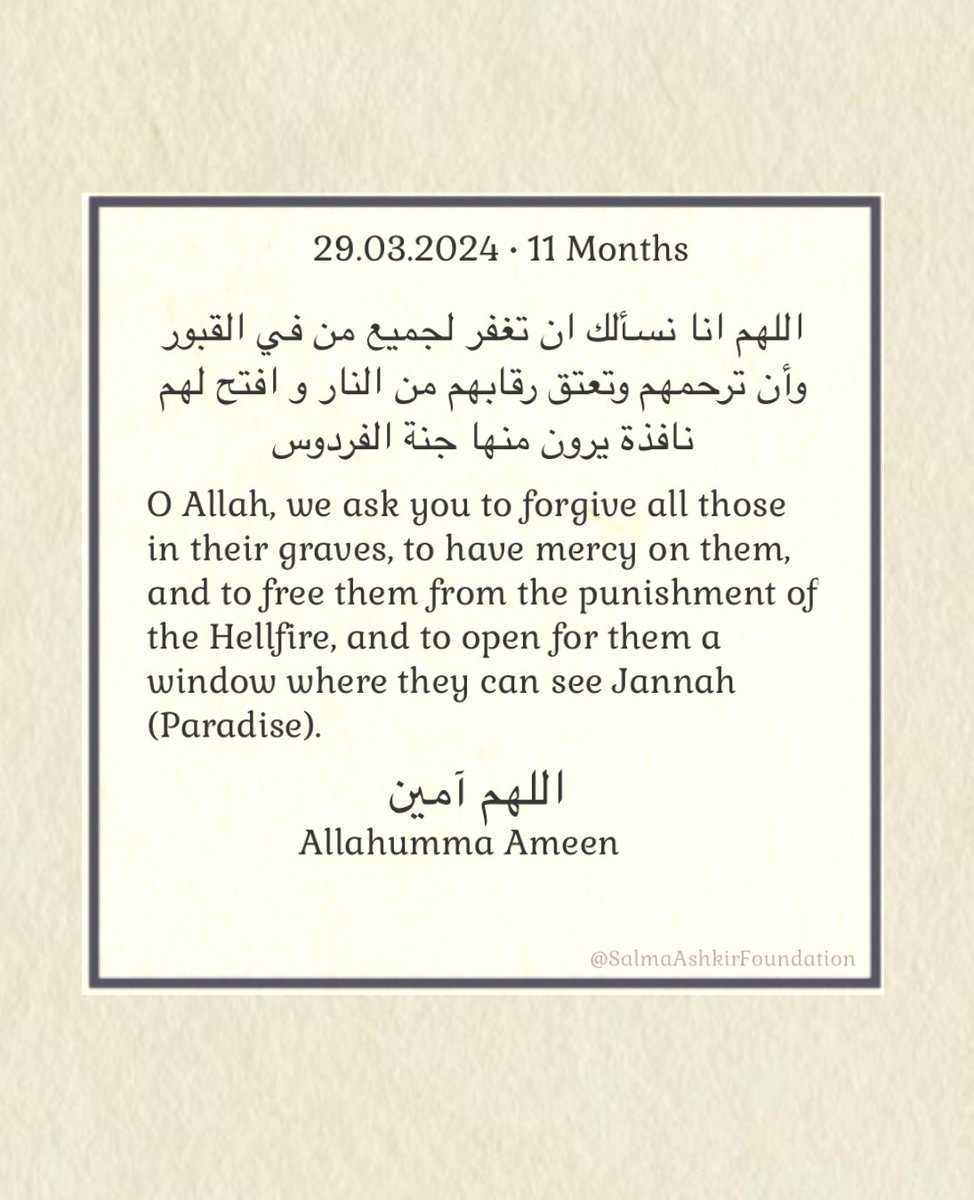 29.03.2024 · 11 Months
اللهم انا نسألك ان تغفر لجميع من في القبور
وأن ترحمهم وتعتق رقابهم من النار و افتح لهم
نافذة يرون منها جنة الفردوس
O Allah, we ask you to forgive all those
in their graves, to have mercy on them,
and to free them from the punishment of
the Hellfire, and to open for them a
window where they can see Jannah
(Paradise).
اللهم آمين
Allahumma Ameen
@SalmaAshkirFoundation